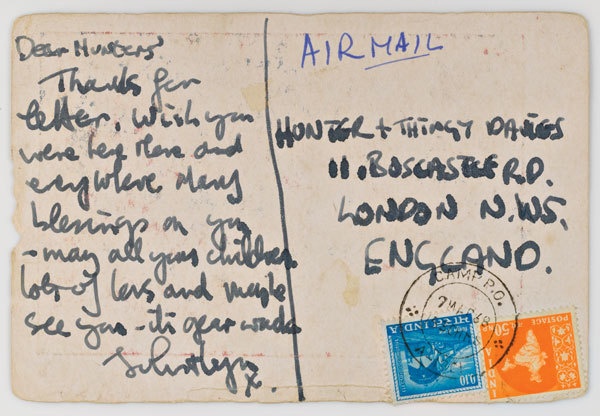 Dear Hunters'
Thanks for
letter. Wish you
were here there and
everywhere Many
blessings on you
- may all your children
lots of love and maybe
see you - its
John
x.
AIRMAIL
HUNTER + THINGY DAVIES
11, BOSCASTLE RD.
LONDON N.W5,
ENGLAND.
CAMP P.O.
भारत INDIA
0.10
POSTAGE
50